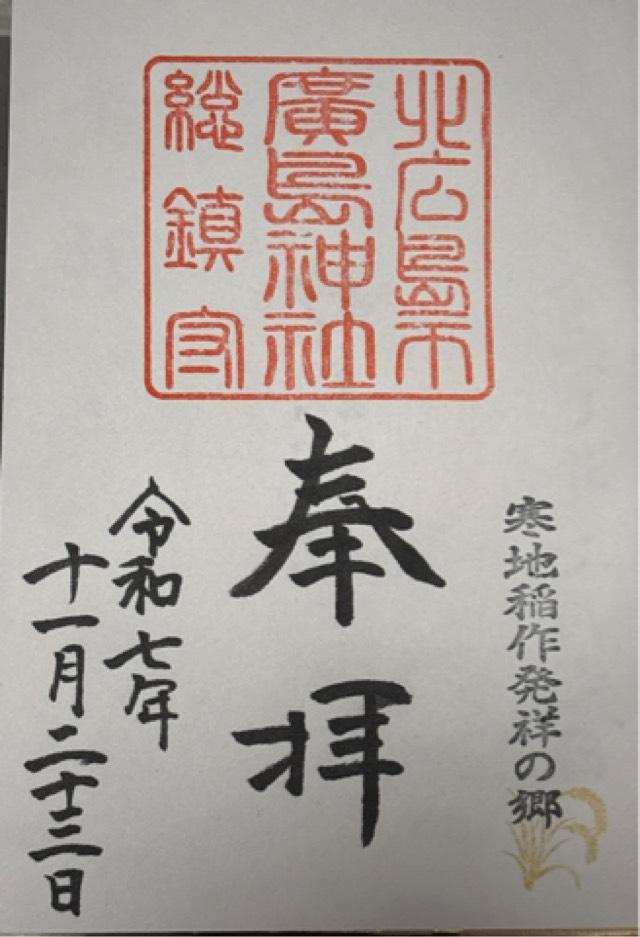 北広島市
廣島神社
総鎮守
寒地稲作発祥の郷
奉拝
令和七年
十一月二十三日